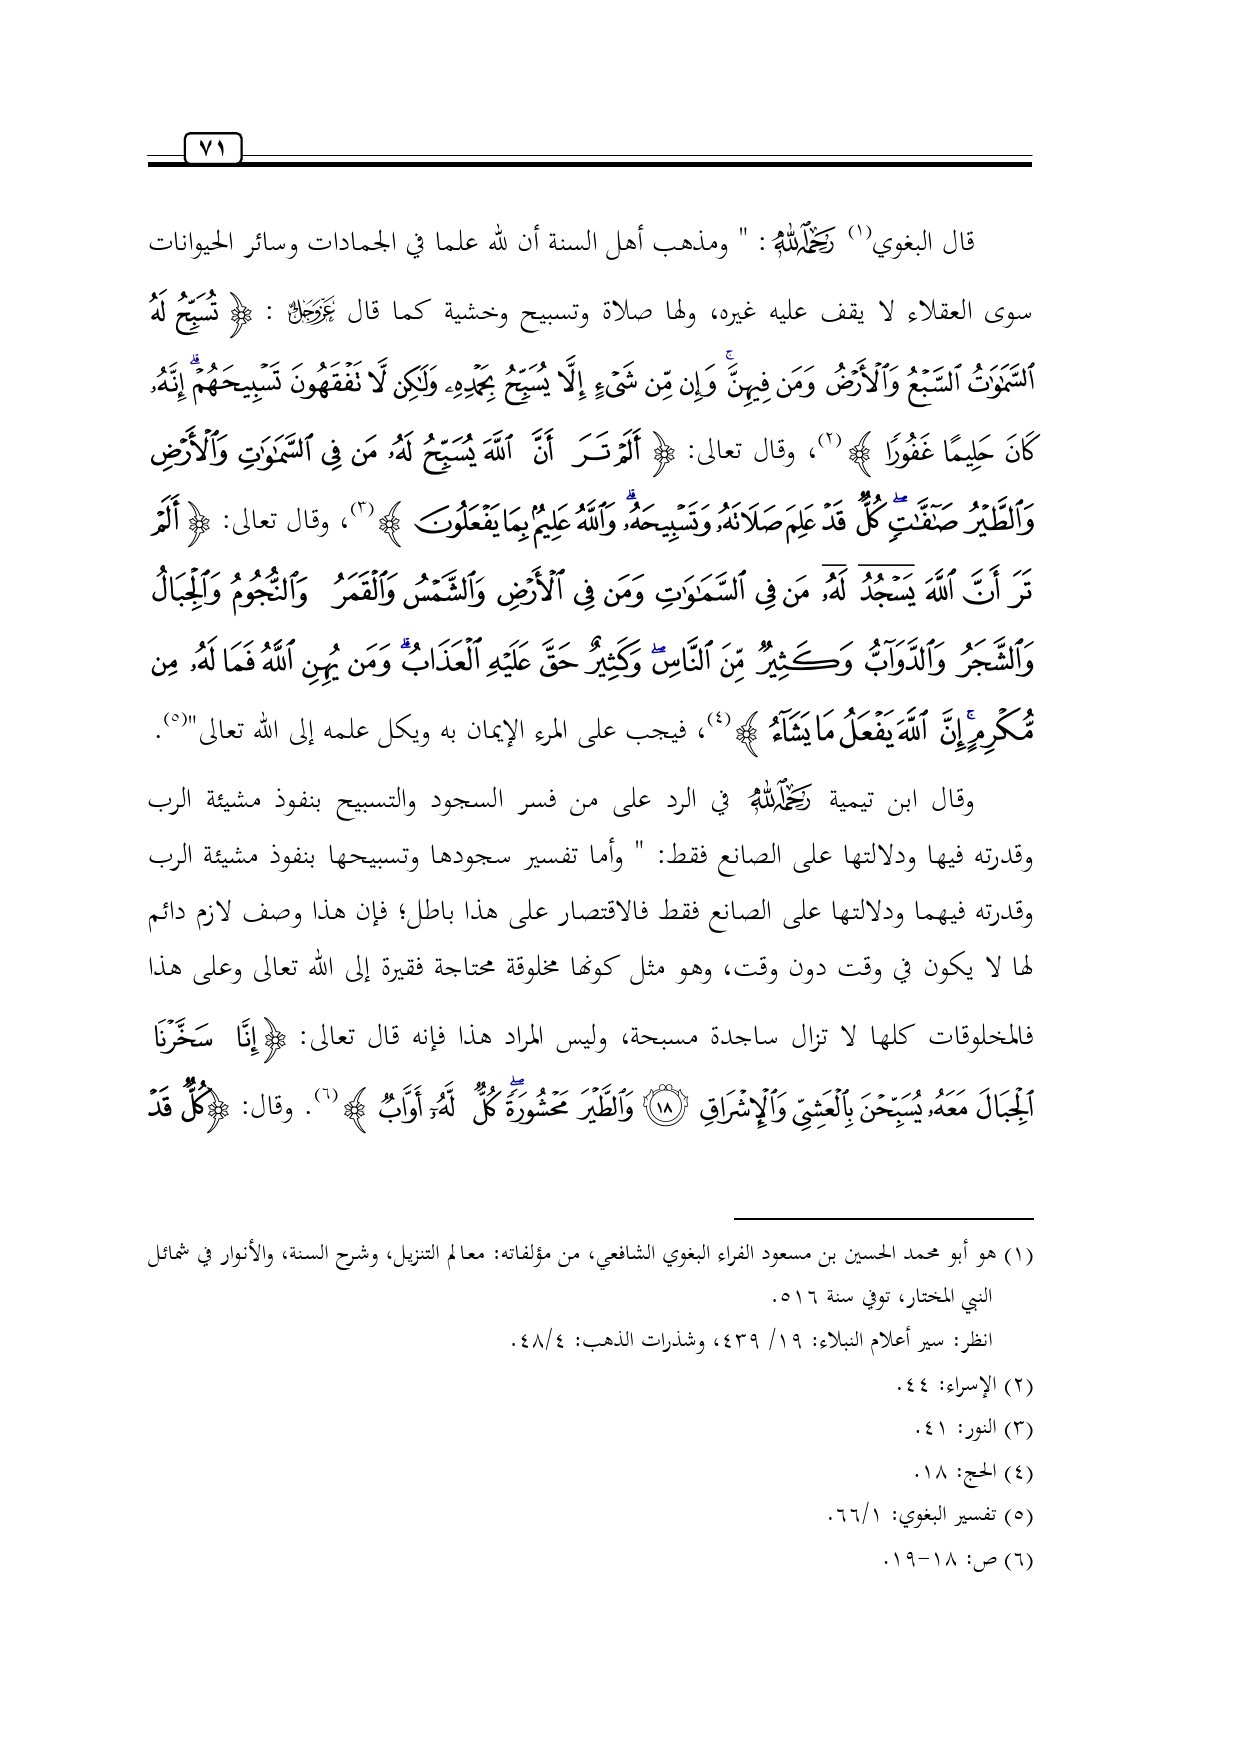 ٧١
قال البغوي(١) رَحِمَهُ اللَّهُ : " ومذهب أهل السنة أن لله علما في الجمادات وسائر الحيوانات
سوى العقلاء لا يقف عليه غيره، ولها صلاة وتسبيح وخشية كما قال عَزَّوَجَلَّ : ﴿ تُسَبِّحُ لَهُ
ٱلسَّمَٰوَٰتُ ٱلسَّبۡعُ وَٱلۡأَرۡضُ وَمَن فِيهِنَّۚ وَإِن مِّن شَيۡءٍ إِلَّا يُسَبِّحُ بِحَمۡدِهِۦ وَلَٰكِن لَّا تَفۡقَهُونَ تَسۡبِيحَهُمۡۗ إِنَّهُۥ
كَانَ حَلِيمًا غَفُورٗا ﴾(٢)، وقال تعالى: ﴿ أَلَمۡ تَرَ أَنَّ ٱللَّهَ يُسَبِّحُ لَهُۥ مَن فِي ٱلسَّمَٰوَٰتِ وَٱلۡأَرۡضِ
وَٱلطَّيۡرُ صَٰٓفَّٰتٖۖ كُلّٞ قَدۡ عَلِمَ صَلَاتَهُۥ وَتَسۡبِيحَهُۥۗ وَٱللَّهُ عَلِيمُۢ بِمَا يَفۡعَلُونَ ﴾(٣)، وقال تعالى: ﴿ أَلَمۡ
تَرَ أَنَّ ٱللَّهَ يَسۡجُدُۤ لَهُۥۤ مَن فِي ٱلسَّمَٰوَٰتِ وَمَن فِي ٱلۡأَرۡضِ وَٱلشَّمۡسُ وَٱلۡقَمَرُ وَٱلنُّجُومُ وَٱلۡجِبَالُ
وَٱلشَّجَرُ وَٱلدَّوَآبُّ وَكَثِيرٞ مِّنَ ٱلنَّاسِۖ وَكَثِيرٌ حَقَّ عَلَيۡهِ ٱلۡعَذَابُۗ وَمَن يُهِنِ ٱللَّهُ فَمَا لَهُۥ مِن
مُّكۡرِمٍۚ إِنَّ ٱللَّهَ يَفۡعَلُ مَا يَشَآءُ ﴾(٤)، فيجب على المرء الإيمان به ويكل علمه إلى الله تعالى"(٥).
وقال ابن تيمية رَحِمَهُ اللَّهُ في الرد على من فسر السجود والتسبيح بنفوذ مشيئة الرب
وقدرته فيها ودلالتها على الصانع فقط: " وأما تفسير سجودها وتسبيحها بنفوذ مشيئة الرب
وقدرته فيهما ودلالتها على الصانع فقط فالاقتصار على هذا باطل؛ فإن هذا وصف لازم دائم
لها لا يكون في وقت دون وقت، وهو مثل كونها مخلوقة محتاجة فقيرة إلى الله تعالى وعلى هذا
فالمخلوقات كلها لا تزال ساجدة مسبحة، وليس المراد هذا فإنه قال تعالى: ﴿ إِنَّا سَخَّرۡنَا
ٱلۡجِبَالَ مَعَهُۥ يُسَبِّحۡنَ بِٱلۡعَشِيِّ وَٱلۡإِشۡرَاقِ ١٨ وَٱلطَّيۡرَ مَحۡشُورَةٗۖ كُلّٞ لَّهُۥٓ أَوَّابٞ ﴾(٦). وقال: ﴿كُلّٞ قَدۡ
(١) هو أبو محمد الحسين بن مسعود الفراء البغوي الشافعي، من مؤلفاته: معالم التنزيل، وشرح السنة، والأنوار في شمائل
النبي المختار، توفي سنة ٥١٦.
انظر: سير أعلام النبلاء: ١٩/ ٤٣٩، وشذرات الذهب: ٤٨/٤.
(٢) الإسراء: ٤٤.
(٣) النور: ٤١.
(٤) الحج: ١٨.
(٥) تفسير البغوي: ٦٦/١.
(٦) ص: ١٨-١٩.